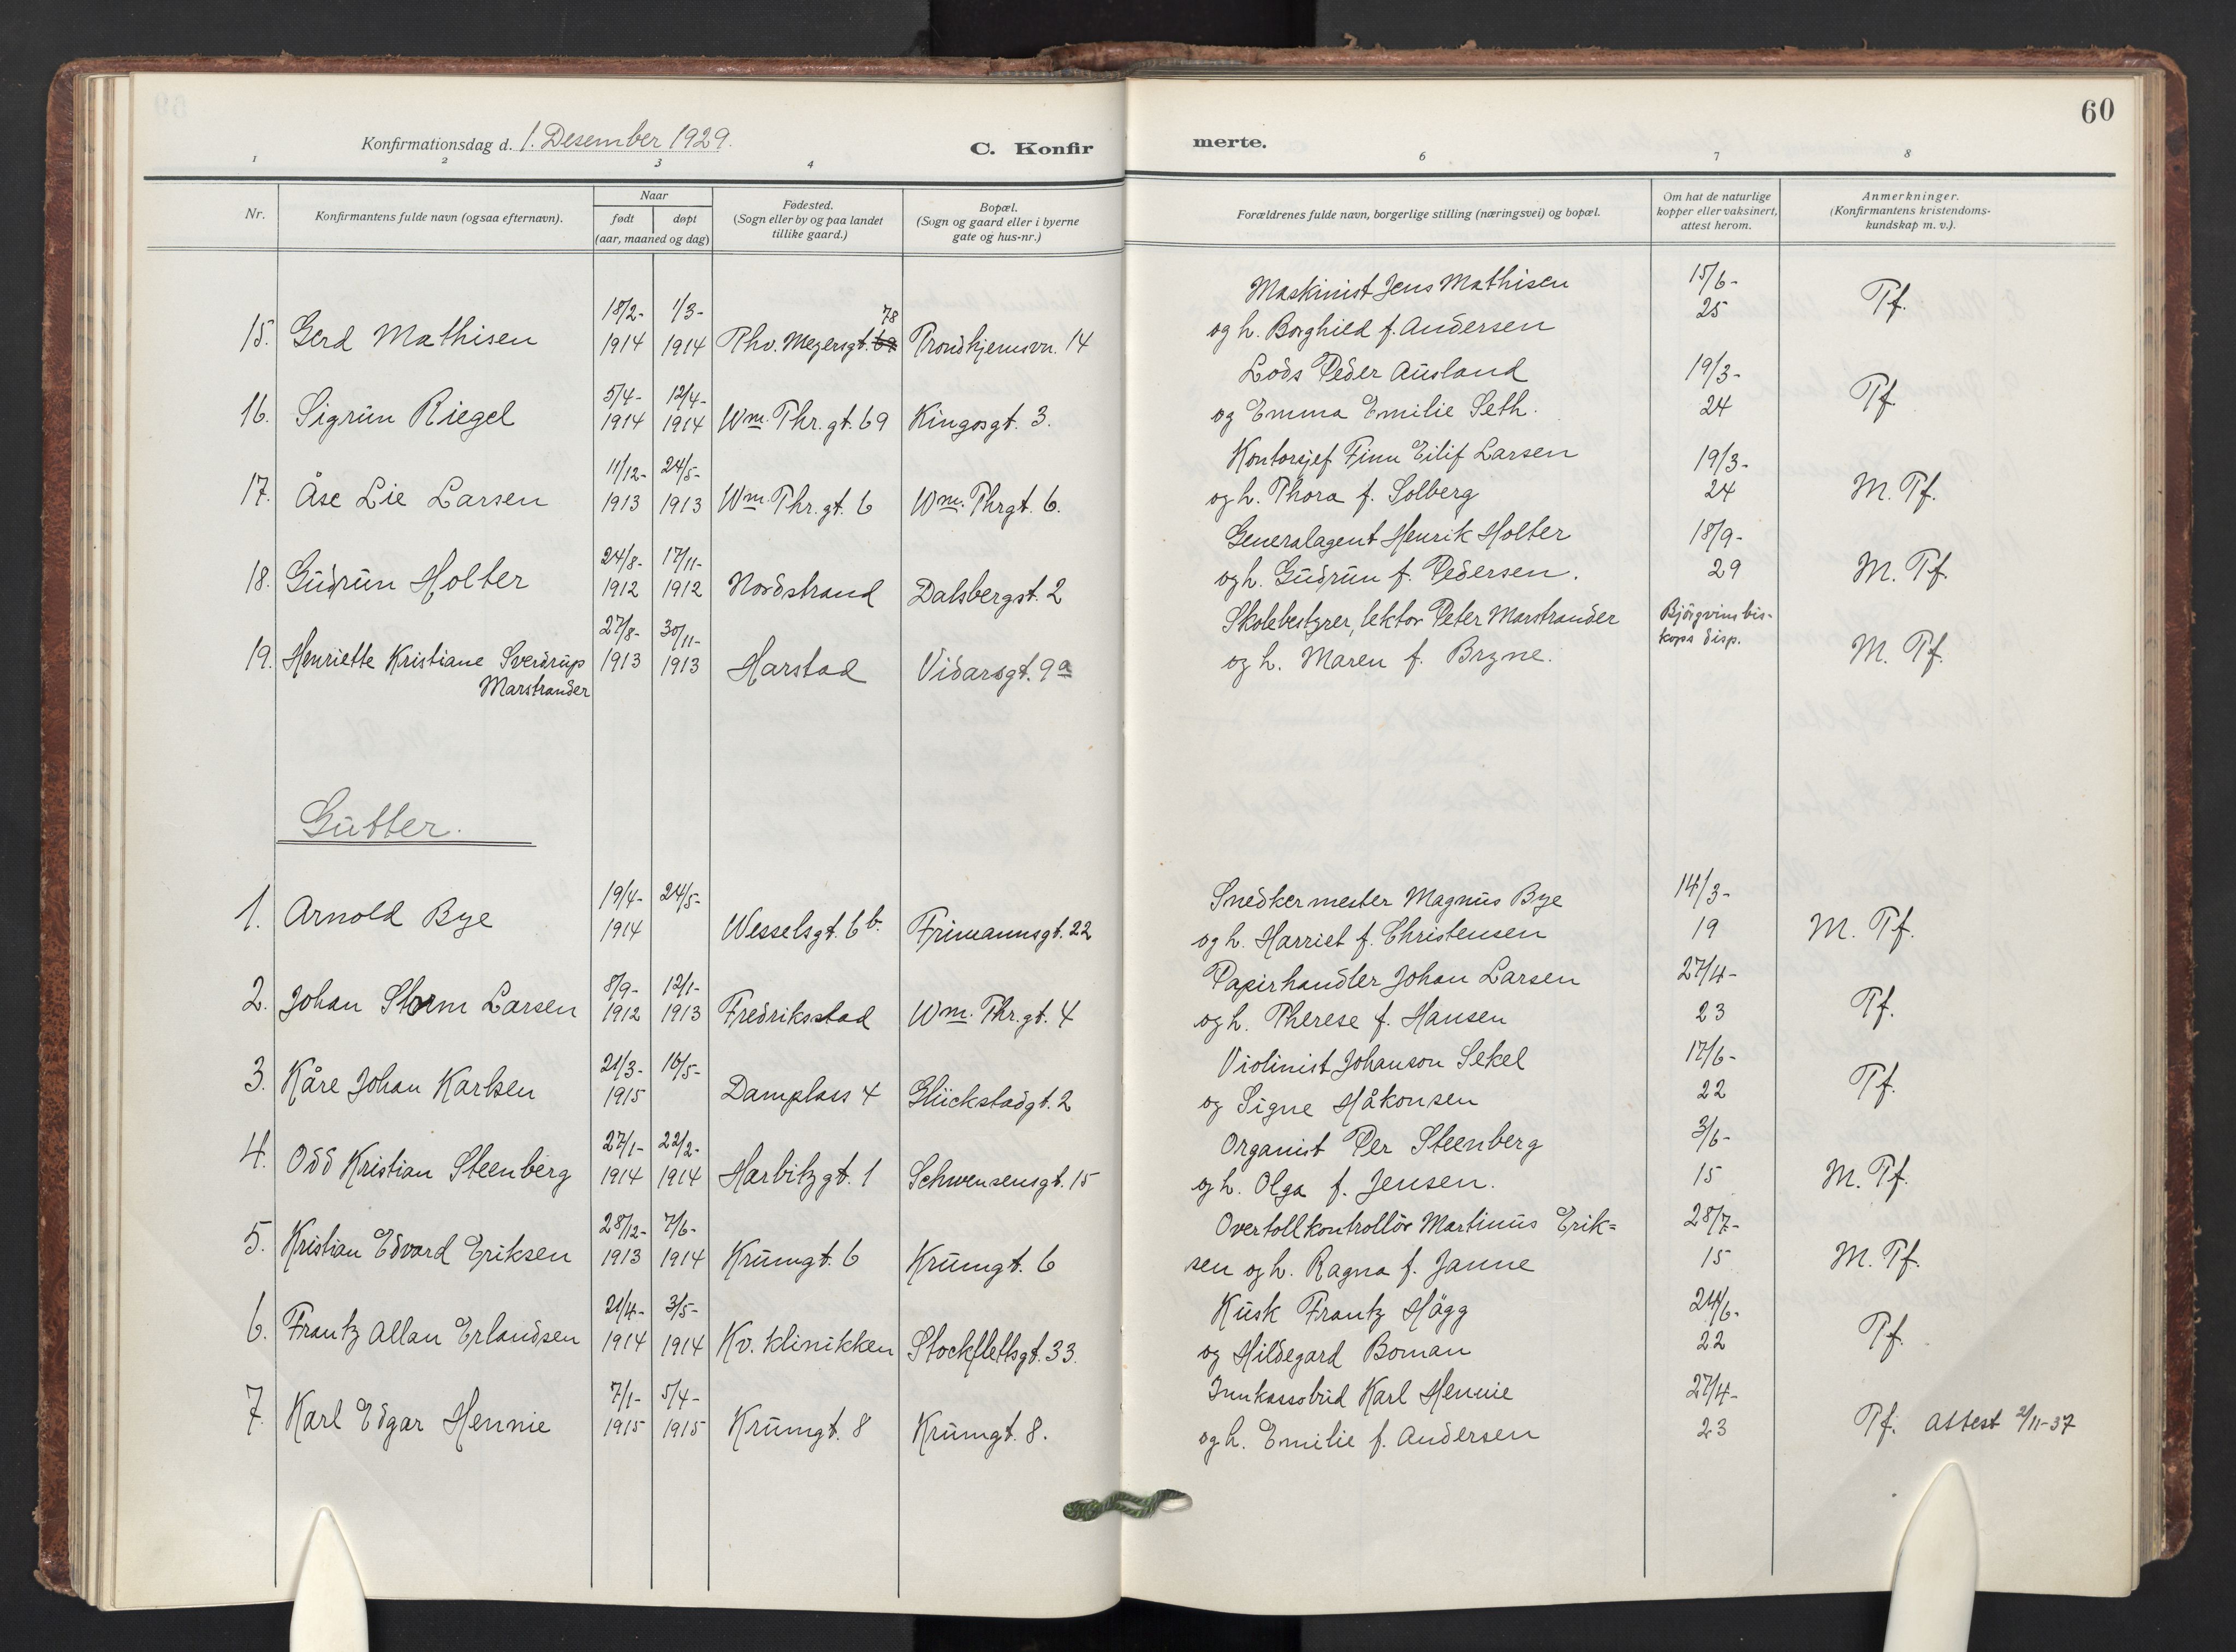 60
Konfirmationsdag d. 1. Desember 1929.
C. Konfirmerte.
1 2 3 4 6 7 8
Nr.
Konfirmantens fulde navn (ogsaa efternavn).
Naar
født døpt
(aar, maaned og dag)
Fødested.
(Sogn eller by og paa landet
tillike gaard.)
Bopæl.
(Sogn og gaard eller i byerne
gate og hus-nr.)
Forældrenes fulde navn, borgerlige stilling (næringsvei) og bopæl.
Om hat de naturlige
kopper eller vaksinert,
attest herom.
Anmerkninger.
(Konfirmantens kristendoms-
kundskap m. v.).
18/2- 1/3- 78 Maskinist Jens Mathisen 15/6-
15. Gerd Mathisen 1914 1914 Thv. Meyersgt. 69 Trondhjemsvn. 14 og h. Borghild f. Andersen 25 Tf.
5/4- 12/4- Lods Peder Ausland 19/3-
16. Sigrun Riegel 1914 1914 Wm. Thr. gt. 69 Kingosgt. 3. og Emma Emilie Seth. 24 Tf
11/12- 24/5- Kontorsjef Finn Eilif Larsen 19/3-
17. Åse Lie Larsen 1913 1913 Wm. Thr. gt. 6 Wm. Thrgt. 6. og h. Thora f. Solberg 24 M. Tf.
24/8- 17/11- Generalagent Henrik Holter 18/9-
18. Gudrun Holter 1912 1912 Nordstrand Dalsbergst. 2 og h. Gudrun f. Pedersen. 29 M. Tf.
27/8- 30/11- Skolebestyrer, lektor Peter Marstrander Bjørgvins bis-
19. Henriette Kristiane Sverdrup 1913 1913 Harstad Vidarsgt. 9a og h. Maren f. Bryne. kops disp. M. Tf.
Marstrander
Gutter.
19/4- 24/5- Snedkermester Magnus Bye 14/3-
1. Arnold Bye 1914 Wesselsgt. 6b. Frimannsgt. 22 og h. Harriet f. Christensen 19 M. Tf.
8/9- 12/1- Papirhandler Johan Larsen 27/4-
2. Johan Storm Larsen 1912 1913 Fredriksstad Wm. Thr. gt. 4 og h. Therese f. Hansen 23 Tf.
21/3- 16/5- Violinist Johanson Sekel 17/6-
3. Kåre Johan Karlsen 1915 Damplass 4 Glückstadgt. 2 og Signe Håkonsen 22 Tf.
27/1- 22/2- Organist Per Steenberg 3/6-
4. Odd Kristian Steenberg 1914 1914 Harbitzgt. 1 Schwensensgt. 15 og h. Olga f. Jensen. 15 M. Tf.
28/12- 7/6- Overtollkontrollör Martinus Erik= 28/7-
5. Kristian Edvard Eriksen 1913 1914 Krumgt. 6 Krumgt. 6 sen og h. Ragna f. Janne 15 M. Tf.
21/4- 3/5- Kusk Frantz Hägg 24/6-
6. Frantz Allan Erlandsen 1914 1914 Kv. klinikken Stockflethsgt. 33. og Hildegard Boman 22 Tf.
7/1- 5/4- Innkassobud Karl Hennie 27/4-
7. Karl Edgar Hennie 1915 1915 Krumgt. 8 Krumgt. 8. og h. Emilie f. Andersen 23 Tf. Attest 2/11-37